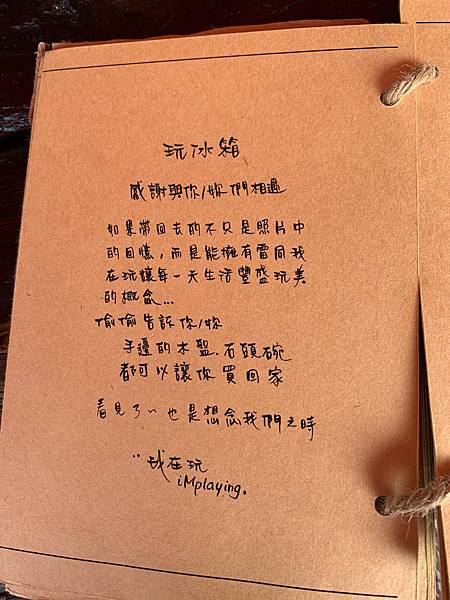 玩冰箱
感謝與你/妳們相遇
如果帶回去的不只是照片中
的回憶,而是能擁有雷同我
在玩讓每一天生活豐盛玩美
的概念...
偷偷告訴你/妳
手邊的木盤.石頭碗
都可以讓你買回家
看見了~也是想念我們之時
¨我在玩
iMplaying.